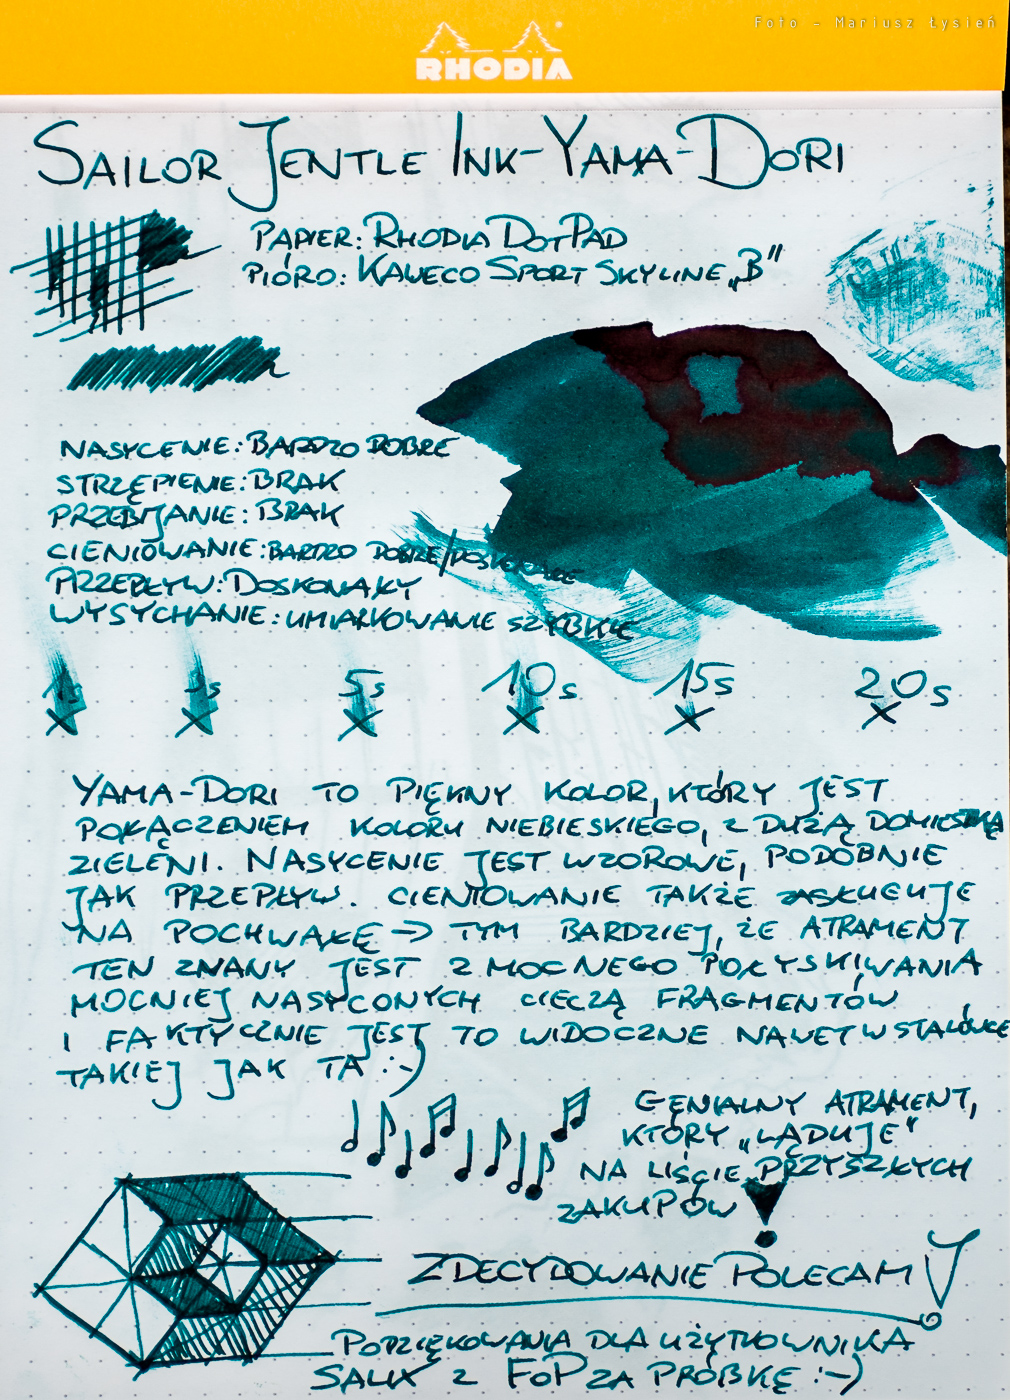 Foto - Mariusz Łysień
RHODIA
SAILOR JENTLE INK-YAMA-DORI
PAPIER: RHODIA DOTPAD
PIÓRO: KAWECO SPORT SKYLINE „B"
NASYCENIE: BARDZO DOBRE
STRZĘPIENIE: BRAK
PRZEBIJANIE: BRAK
CIENIOWANIE: BARDZO DOBRE/DOSKONAŁE
PRZEPŁYW: DOSKONAŁY
WYSYCHANIE: UMIARKOWANIE SZYBKIE
1s 3s 5s 10s 15s 20s
YAMA-DORI TO PIĘKNY KOLOR, KTÓRY JEST
POŁĄCZENIEM KOLORU NIEBIESKIEGO, Z DUŻĄ DOMIESZKĄ
ZIELENI. NASYCENIE JEST WZOROWE, PODOBNIE
JAK PRZEPŁYW. CIENIOWANIE TAKŻE ZASŁUGUJE
NA POCHWAŁĘ → TYM BARDZIEJ, ŻE ATRAMENT
TEN ZNANY JEST Z MOCNEGO POŁYSKIWANIA
MOCNIEJ NASYCONYCH CIECZĄ FRAGMENTÓW
I FAKTYCZNIE JEST TO WIDOCZNE NAWET W STALÓWCE
TAKIEJ JAK TA :-)
GENIALNY ATRAMENT,
KTÓRY „LĄDUJE"
NA LIŚCIE PRZYSZŁYCH
ZAKUPÓW!
ZDECYDOWANIE POLECAM!
PODZIĘKOWANIA DLA UŻYTKOWNIKA
SALIX Z FOP ZA PRÓBKĘ :-)